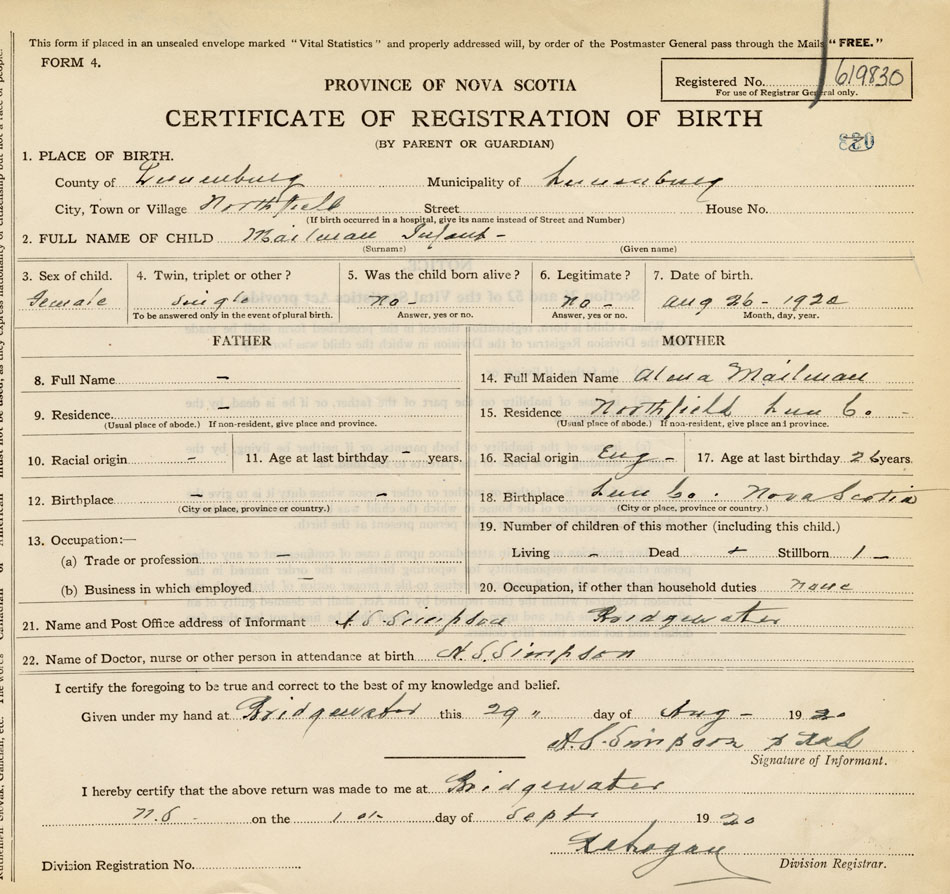 This form if placed in an unsealed envelope marked "Vital Statistics" and properly addressed will, by order of the Postmaster General pass through the Mails "FREE."
FORM 4.
PROVINCE OF NOVA SCOTIA
Registered No. 619830
For use of Registrar General only.
CERTIFICATE OF REGISTRATION OF BIRTH
(BY PARENT OR GUARDIAN)
1. PLACE OF BIRTH.
County of Lunenburg Municipality of Lunenburg
City, Town or Village Northfield Street House No.
(If birth occurred in a hospital, give its name instead of Street and Number)
2. FULL NAME OF CHILD Mailman Infant -
(Surname) (Given name)
3. Sex of child. 4. Twin, triplet or other? 5. Was the child born alive? 6. Legitimate? 7. Date of birth.
Female single no - no - Aug 26 - 1920
To be answered only in the event of plural birth. Answer, yes or no. Answer, yes or no. Month, day, year.
FATHER MOTHER
8. Full Name - 14. Full Maiden Name Mailman
9. Residence. - 15. Residence Northfield Lun Co. -
(Usual place of abode.) If non-resident, give place and province. (Usual place of abode.) If non-resident, give place and province.
10. Racial origin - 11. Age at last birthday - years. 16. Racial origin Eng - 17. Age at last birthday 26 years.
12. Birthplace - - 18. Birthplace Lun Co. Nova Scotia
(City or place, province or country.) (City or place, province or country.)
19. Number of children of this mother (including this child.)
13. Occupation:—
(a) Trade or profession - Living - Dead Stillborn 1 -
(b) Business in which employed - 20. Occupation, if other than household duties none
21. Name and Post Office address of Informant Simpson Bridgewater
22. Name of Doctor, nurse or other person in attendance at birth Simpson
I certify the foregoing to be true and correct to the best of my knowledge and belief.
Given under my hand at Bridgewater this 29 " day of Aug - 1920
Simpson
Signature of Informant.
I hereby certify that the above return was made to me at Bridgewater
N.S. on the 1st day of Sept 1920
Division Registration No. Division Registrar.